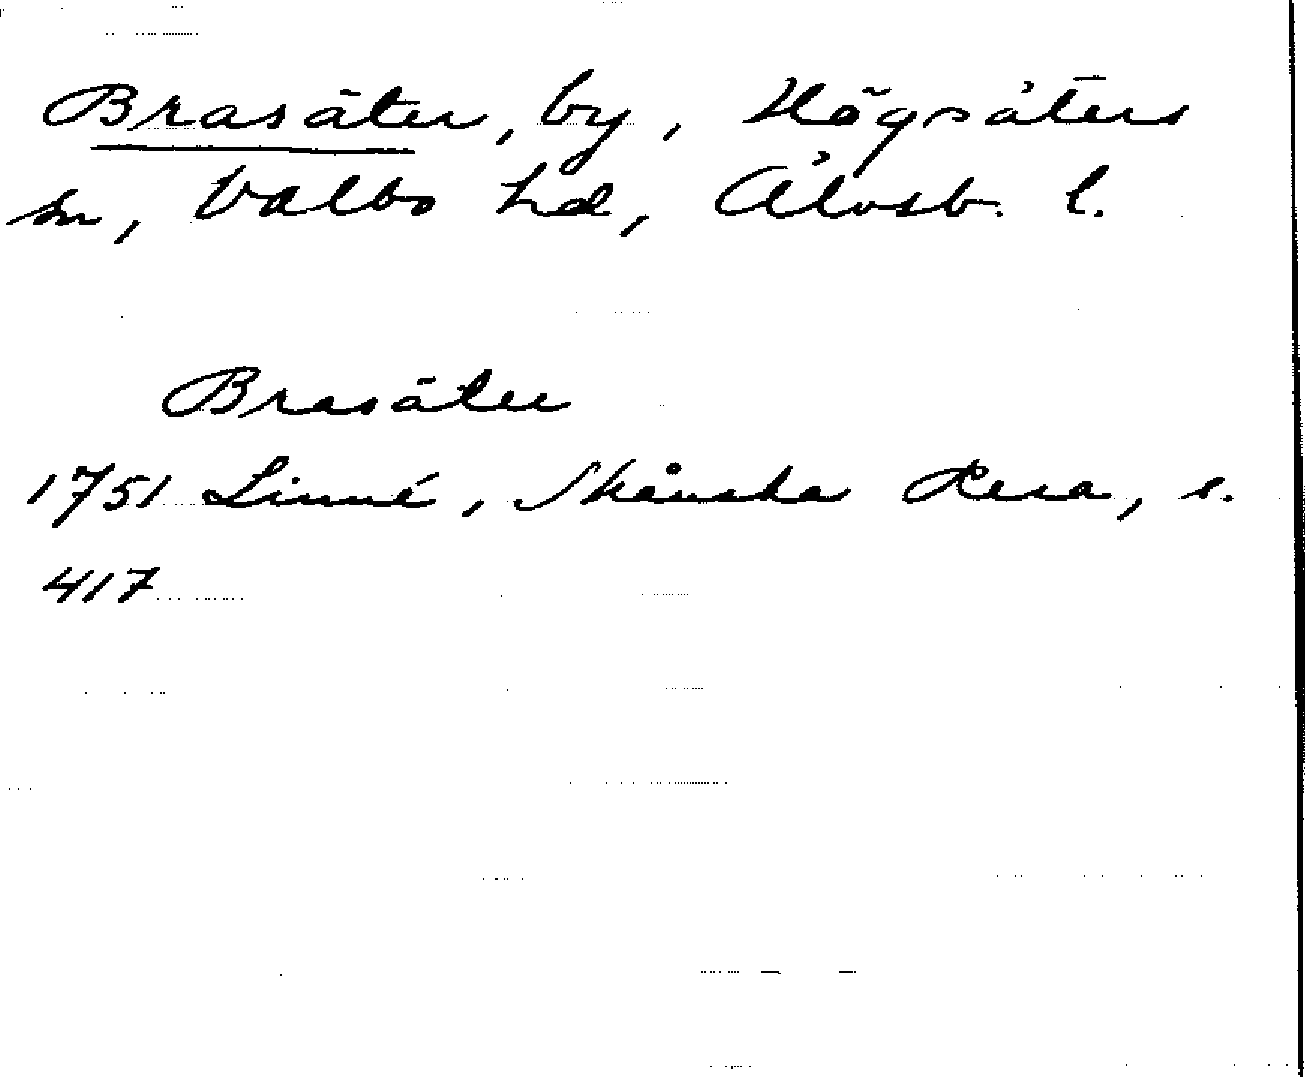 Brasäter, by, Högsäters
sn, Valbo hd, Älvsb. l.
Brasäter
1751 Linné, Skånska Resa, s.
417